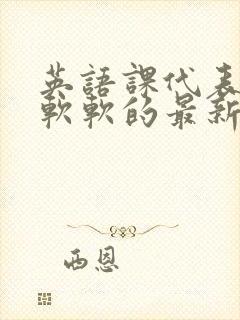 英語課代表
軟軟的最新
西恩